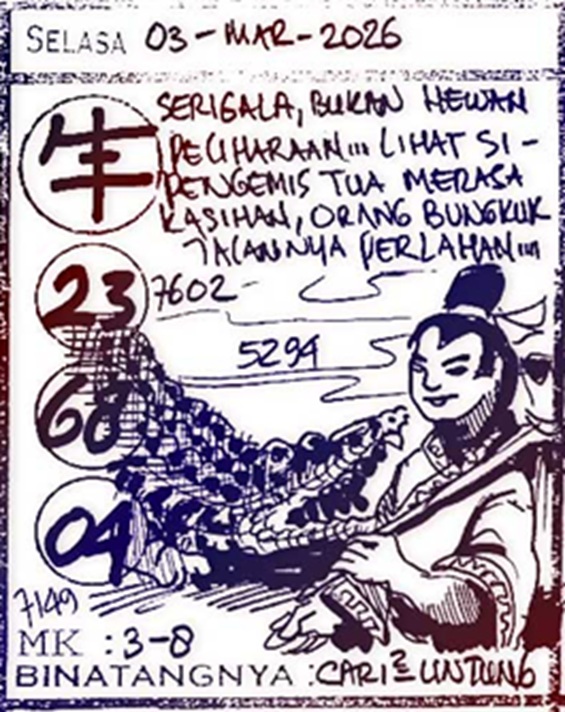 SELASA 03-MAR-2026
牛
SERIGALA, BUKAN HEWAN
PELIHARAAN... LIHAT SI-
PENGEMIS TUA MERASA
KASIHAN, ORANG BUNGKUK
JALANNYA PERLAHAN...
23
7602
5294
68
04
7149
MK : 3-8
BINATANGNYA : CARI2 UNTUNG